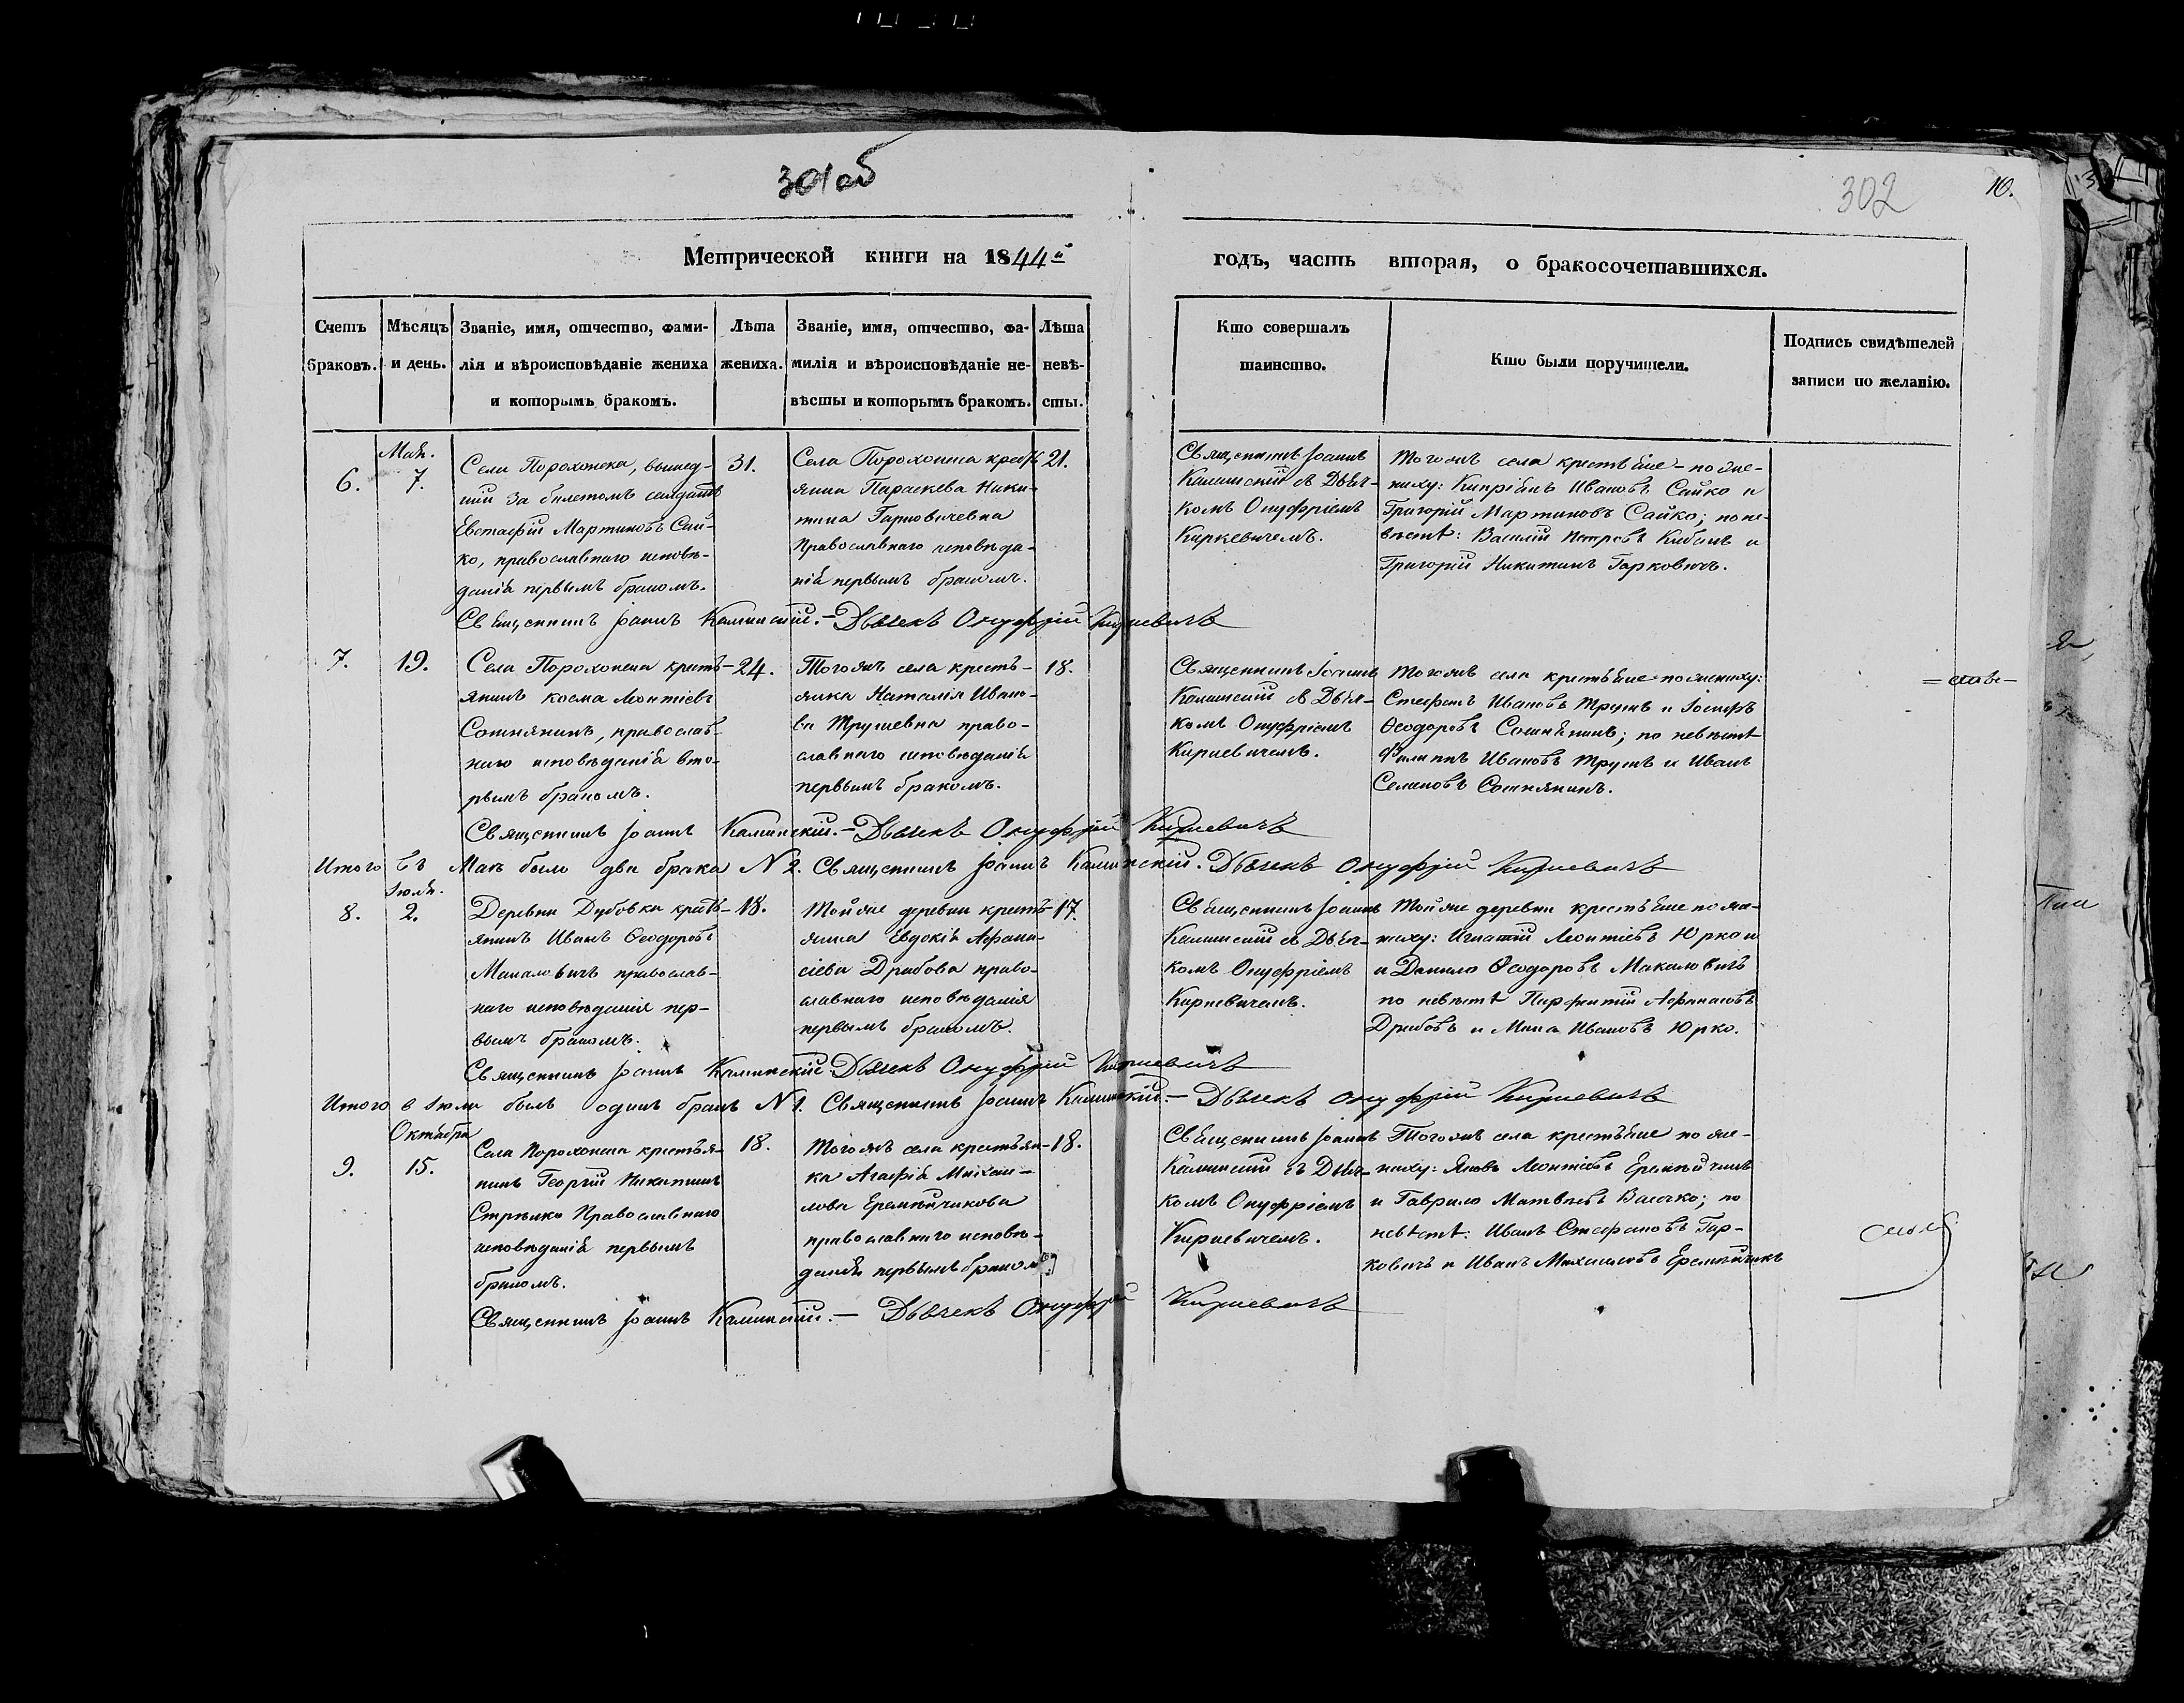 301об
302
10.
Метрической книги на 1844й
годъ, часть вторая, о бракосочетавшихся.
Счетъ браковъ.
Мѣсяцъ и день.
Званіе, имя, отчество, фами-
лія и вѣроисповѣданіе жениха
и которымъ бракомъ.
Лѣта
жениха.
Званіе, имя, отчество, фа-
милія и вѣроисповѣданіе не-
вѣсты и которымъ бракомъ.
Лѣта
невѣ-
сты.
Кто совершалъ
таинство.
Кто были поручители.
Подпись свидѣтелей
записи по желанію.
6.
Маѣ.
7.
Села Порохонска, вышед-
шій за билетомъ солдатъ
Евстафій Мартиновъ Сай-
ко, православнаго исповѣ-
данія первымъ бракомъ.
31.
Села Порохонска кресть
янка Параскева Ники-
тина Гарковичевна
Православнаго исповѣда-
нія первымъ бракомъ.
21.
Священникъ Іоаннъ
Калинскій съ Дьяч-
комъ Онуфріемъ
Киркевичемъ.
Тогожъ села крестьяне - по же-
ниху: Кипріянъ Ивановъ Сайко и
Григорій Мартиновъ Сайко; по не-
вѣстѣ: Василій Петровъ и
Григорій Никитинъ Гарковичъ.
Священникъ Іоаннъ Калинскій. - Дьячекъ Онуфрій Киркевичъ
7.
19.
Села Порохонска кресть-
янинъ Косма Леонтіевъ
Сотнянинъ, православ-
наго исповѣданія вто-
рымъ бракомъ.
24.
Тогожъ села кресть-
янка Наталія Ивано-
ва Трушевна право-
славнаго исповѣданія
первымъ бракомъ.
18.
Священникъ Іоаннъ
Калинскій съ Дьяч-
комъ Онуфріемъ
Киркевичемъ.
Тогожъ села крестьяне по жениху:
Стефанъ Ивановъ Трушъ и Іосифъ
Ѳеодоровъ Сотнянинъ; по невѣстѣ
Филиппъ Ивановъ Трушъ и Иванъ
Семеновъ Сотнянинъ.
Священникъ Іоаннъ Калинскій. - Дьячекъ Онуфрій Киркевичъ
Итого въ Маѣ было два брака N 2. Священникъ Іоаннъ Калинскій. Дьячекъ Онуфрій Киркевичъ
8.
Іюля.
2.
Деревни Дубовки кресть-
янинъ Иванъ Ѳеодоровъ
Макаловичъ православ-
наго исповѣданія пер-
вымъ бракомъ.
18.
Тойже деревни кресть-
янка Евдокія Афана-
сіева Дрибова право-
славнаго исповѣданія
первымъ бракомъ.
17.
Священникъ Іоаннъ
Калинскій съ Дьяч-
комъ Онуфріемъ
Киркевичемъ.
Тойже деревни крестьяне по же-
ниху: Игнатій Леонтіевъ Юрко и
и Данило Ѳеодоровъ Макаловичъ
по невѣстѣ Парфентій Афанасовъ
Дрибовъ и Мина Ивановъ Юрко.
Священникъ Іоаннъ Калинскій Дьячекъ Онуфрій Киркевичъ
Итого в Іюли былъ одинъ бракъ N 1. Священникъ Іоаннъ Калинскій. - Дьячекъ Онуфрій Киркевичъ
9.
Октября
15.
Села Порохонска крестья-
нинъ Георгій Никитинъ
Стрѣлка Православнаго
исповѣданія первымъ
бракомъ.
18.
Тогожъ села крестьян-
ка Агафія Михаи-
лова Еремѣйчикова
православнаго исповѣ-
данія первымъ бракомъ
18.
Священникъ Іоаннъ
Калинскій съ Дьяч-
комъ Онуфріемъ
Киркевичемъ.
Тогожъ села крестьяне по же-
ниху: Яковъ Леонтіевъ Еремѣйчикъ
и Гаврило Матвѣевъ Васько; по
невѣстѣ: Иванъ Стефановъ Гар-
ковичъ и Иванъ Михаиловъ Еремѣйчикъ
Священникъ Іоаннъ Калинскій. - Дьячекъ Онуфрій Киркевичъ